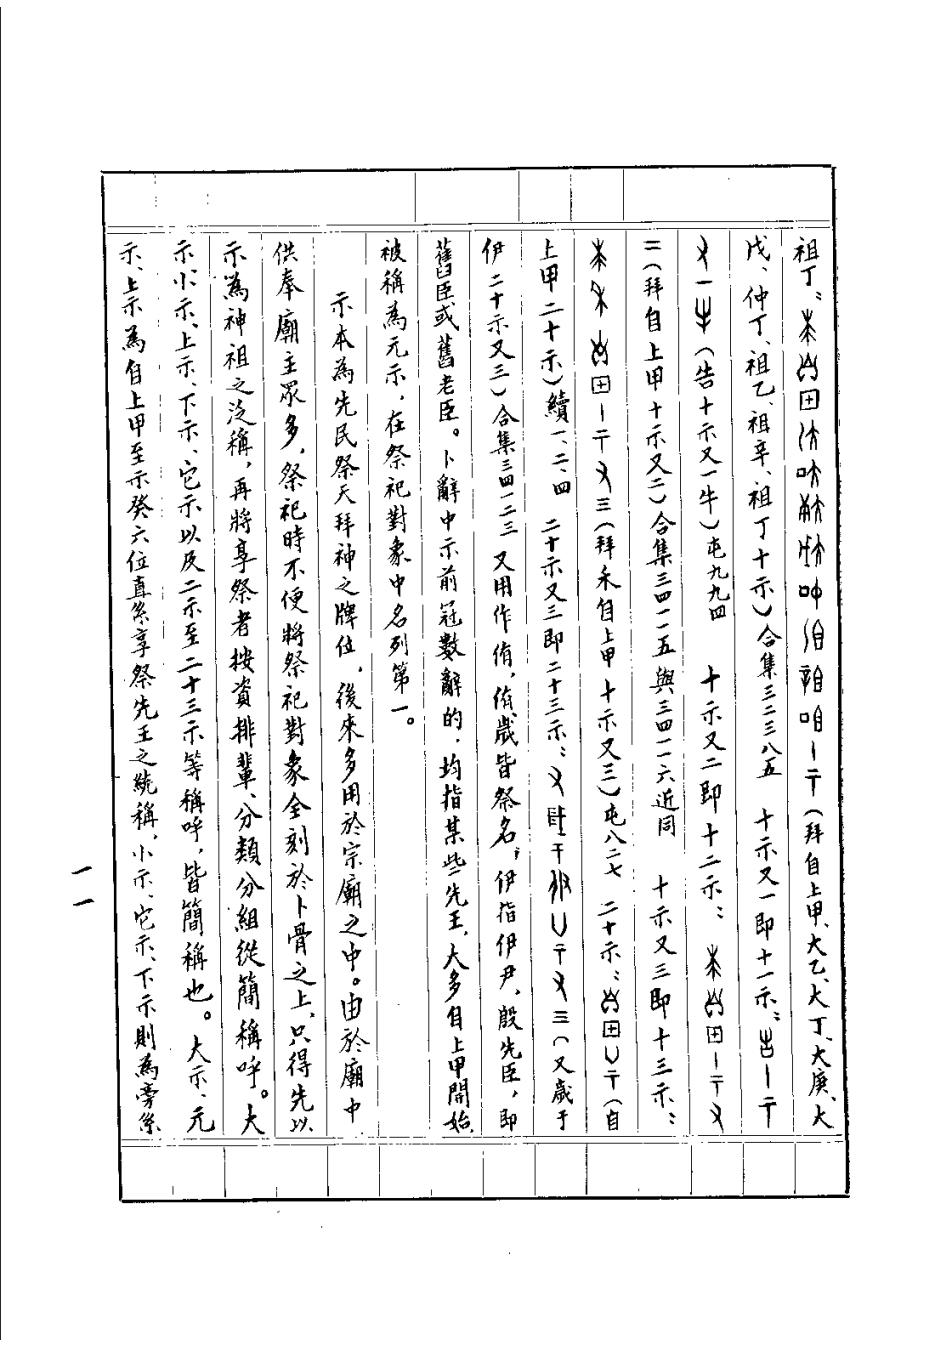 祖丁：（拜自上甲、大乙、大丁、大庚、大
戊、仲丁、祖乙、祖辛、祖丁十示）合集三二三八五　十示又一即十一示：
（告十示又一牛）屯九九四　十示又二即十二示：
二（拜自上甲十示又二）合集三四一一五與三四一一六近同　十示又三即十三示：
三（拜禾自上甲十示又三）屯八二七　二十示：（自
上甲二十示）續一、二、四　二十示又三即二十三示：三（又歲于
伊二十示又三）合集三四一二三　又用作侑，侑歲皆祭名，伊指伊尹，殷先臣，即
舊臣或舊老臣。卜辭中示前冠數辭的，均指某些先王，大多自上甲開始，
被稱為元示，在祭祀對象中名列第一。
示本為先民祭天拜神之牌位，後來多用於宗廟之中。由於廟中
供奉廟主眾多，祭祀時不便將祭祀對象全刻於卜骨之上，只得先以
示為神祖之泛稱，再將享祭者按資排輩、分類分組從簡稱呼。大
示、小示、上示、下示、它示以及二示至二十三示等稱呼，皆簡稱也。大示、元
示、上示為自上甲至示癸六位直系享祭先王之統稱，小示、它示、下示則為旁系
一一